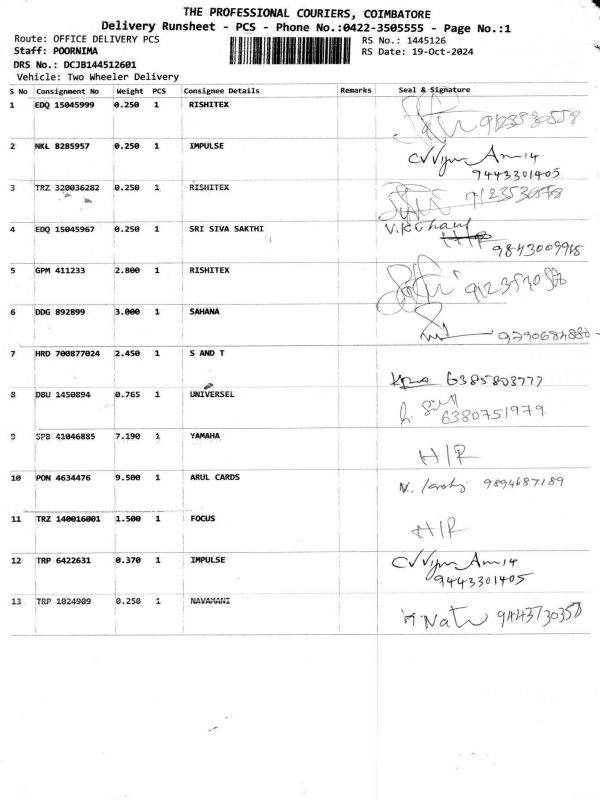 THE PROFESSIONAL COURIERS, COIMBATORE
Delivery Runsheet - PCS - Phone No.:0422-3505555 - Page No.:1
Route: OFFICE DELIVERY PCS RS No.: 1445126
Staff: POORNIMA RS Date: 19-Oct-2024
DRS No.: DCJB144512601
Vehicle: Two Wheeler Delivery
S No Consignment No Weight PCS Consignee Details Remarks Seal & Signature
1 EDQ 15045999 0.250 1 RISHITEX
2 NKL 8285957 0.250 1 IMPULSE
9443301405
3 TRZ 320036282 0.250 1 RISHITEX
4 EDQ 15045967 0.250 1 SRI SIVA SAKTHI
5 GPM 411233 2.800 1 RISHITEX
6 DDG 892899 3.000 1 SAHANA
7 HRD 700877024 2.450 1 S AND T
6385803777
8 DBU 1450894 0.765 1 UNIVERSEL
6380751979
9 SPB 41046885 7.190 1 YAMAHA
H/R
10 PON 4634476 9.500 1 ARUL CARDS
9894687189
11 TRZ 140016001 1.500 1 FOCUS
H/R
12 TRP 6422631 0.370 1 IMPULSE
9443301405
13 TRP 1024909 0.250 1 NAVAMANI